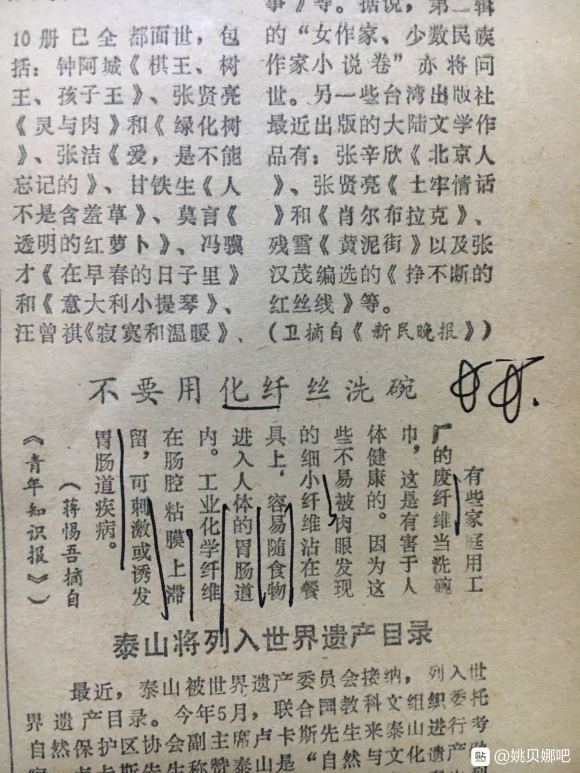 10册已全都面世，包
括：钟阿城《棋王、树
王、孩子王》、张贤亮
《灵与肉》和《绿化树
》、张洁《爱，是不能
忘记的》、甘铁生《人
不是含羞草》、莫言《
透明的红萝卜》、冯骥
才《在早春的日子里》
和《意大利小提琴》、
汪曾祺《寂寞和温暖》、
事》等。据说，第二辑
的“女作家、少数民族
作家小说卷”亦将问
世。另一些台湾出版社
最近出版的大陆文学作
品有：张辛欣《北京人
》、张贤亮《土牢情话
》和《肖尔布拉克》、
残雪《黄泥街》以及张
汉茂编选的《挣不断的
红丝线》等。
（卫摘自《新民晚报》）
不要用化纤丝洗碗
有些家庭用工
厂的废纤维当洗碗
巾，这是有害于人
体健康的。因为这
些不易被肉眼发现
的细小纤维沾在餐
具上，容易随食物
进入人体的胃肠道
内。工业化学纤维
在肠腔粘膜上滞
留，可刺激或诱发
胃肠道疾病。
（蒋惕吾摘自
《青年知识报》）
泰山将列入世界遗产目录
最近，泰山被世界遗产委员会接纳，列入世
界遗产目录。今年5月，联合国教科文组织委托
自然保护区协会副主席卢卡斯先生来泰山进行考
卢卡斯先生称赞泰山是“自然与文化遗产
贴 @姚贝娜吧